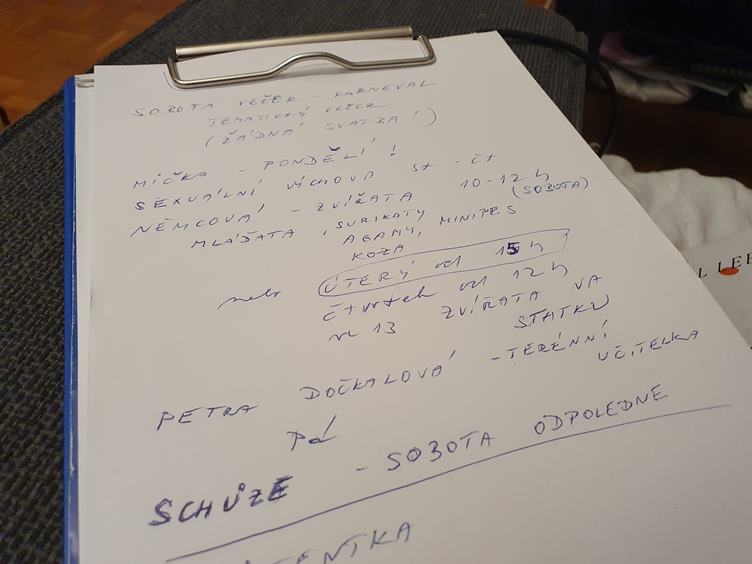 SOBOTA VEČER - KARNEVAL
TÉMATICKÝ VEČER
(ŽÁDNÁ SVATBA!)
MÍČKA - PONDĚLÍ!
SEXUÁLNÍ VÝCHOVA ST - ČT
NĚMCOVÁ - ZVÍŘATA 10-12 h
(SOBOTA)
MLÁĎATA, SURIKATY
AGAMY, MINIPES
KOZA
nebo ÚTERÝ od 15 h
čtvrtek od 12 h
ve 13 ZVÍŘATA VA
STATKU
PETRA DOČKALOVÁ - TERÉNNÍ
UČITELKA
Pá
SCHŮZE - SOBOTA ODPOLEDNE
L LEE